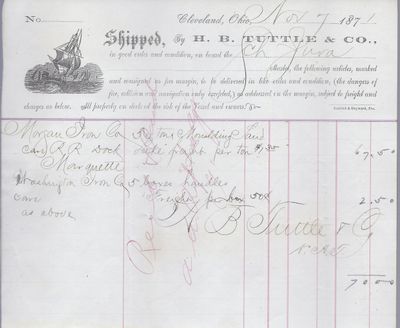 No. Cleveland, Ohio, Nov 7 1871.
Shipped, By H. B. TUTTLE & CO.,
in good order and condition, on board the Sch Java
the following articles, marked
and consigned as per margin, to be delivered in like order and condition, (the dangers of
fire, collision and navigation only excepted,) as addressed on the margin, subject to freight and
charges as below. All property on deck at the risk of the Vessel and owners.
Morgan Iron Co 50 tons Moulding Sand
care R. R. Dock freight per ton $1.35 67.50
Marquette
Washington Iron Co 5 boxes handles
care Freight per box 50¢ 2.50
as above H B Tuttle & Co
70 00